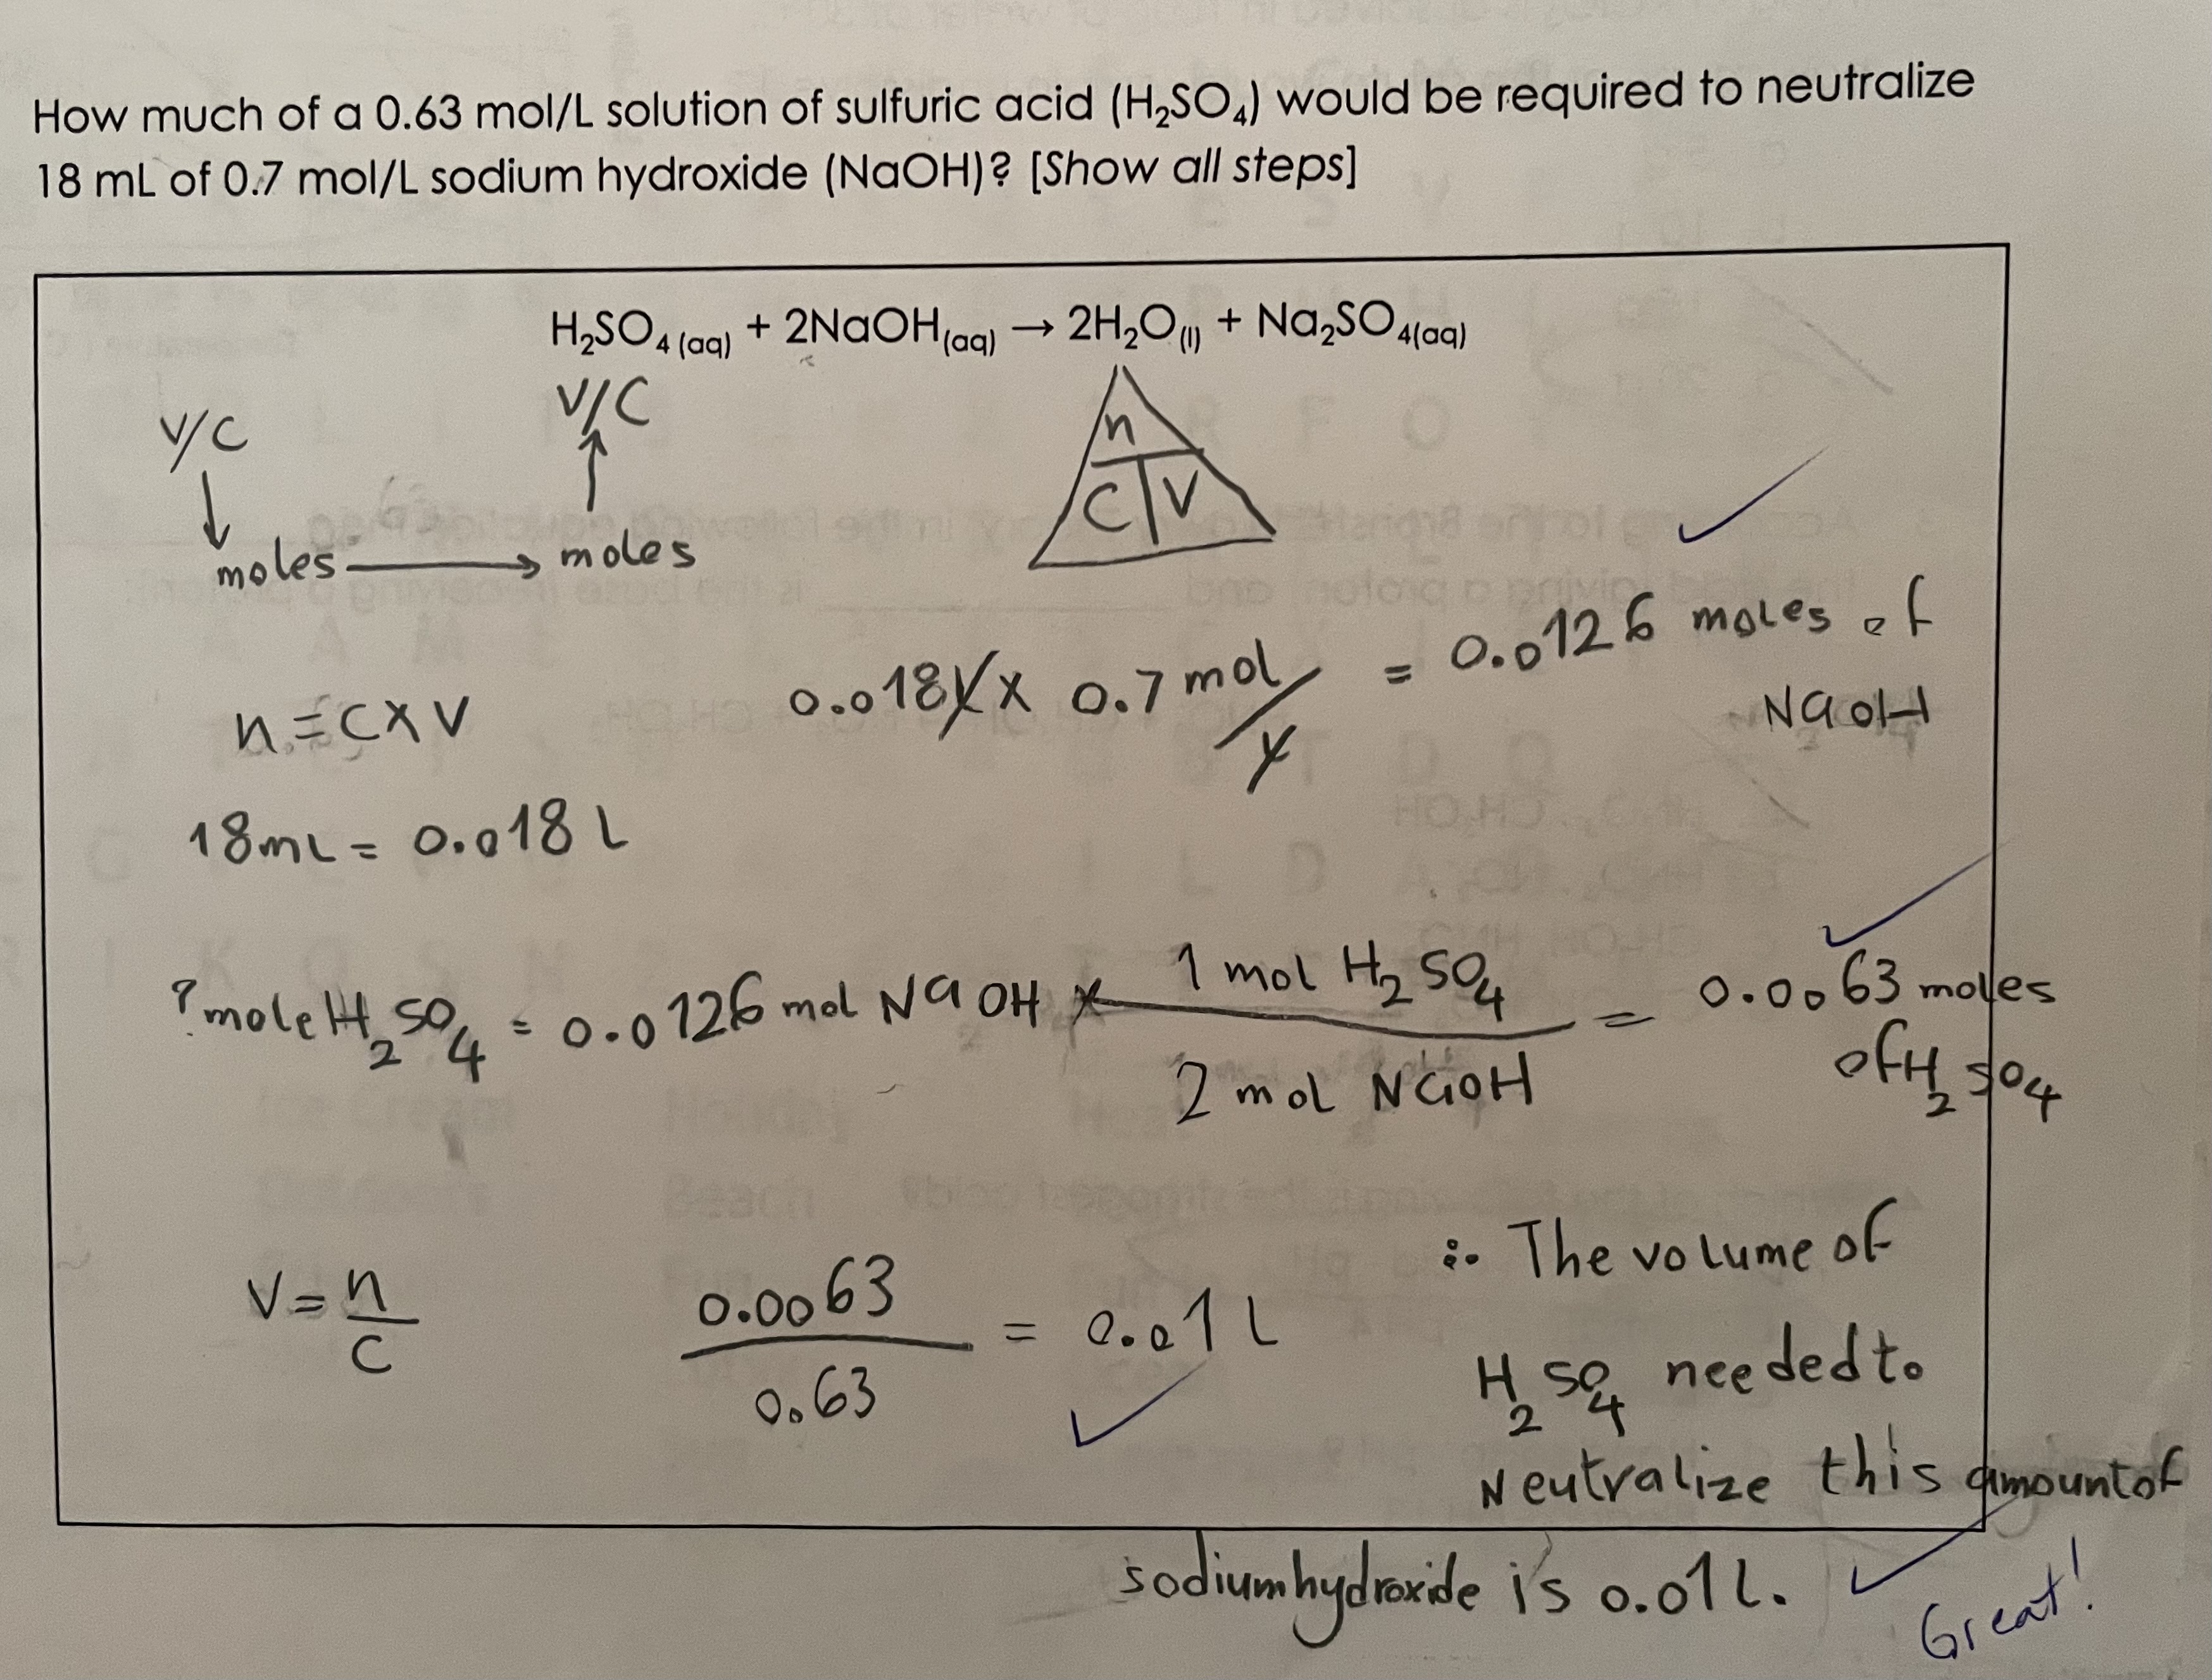 How much of a 0.63 mol/L solution of sulfuric acid (H₂SO₄) would be required to neutralize
18 mL of 0.7 mol/L sodium hydroxide (NaOH)? [Show all steps]
H₂SO₄ (aq) + 2NaOH(aq) → 2H₂O(l) + Na₂SO₄(aq)
V/C
V/C
n
C V
moles → moles
0.018 L x 0.7 mol/L = 0.0126 moles of
NaOH
n = C x V
18mL = 0.018 L
? mole H₂SO₄ = 0.0126 mol NaOH x 1 mol H₂SO₄ / 2 mol NaOH = 0.0063 moles
of H₂SO₄
V = n/C
0.0063 / 0.63 = 0.01 L
∴ The volume of
H₂SO₄ needed to
Neutralize this amount of
sodium hydroxide is 0.01 L.
Great!